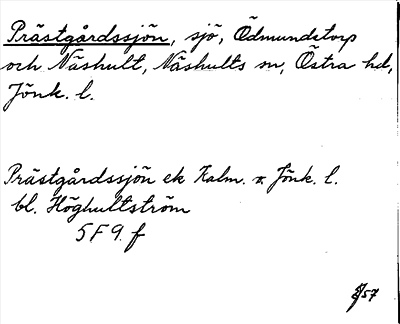 Prästgårdssjön, sjö, Ödmundstorp
och Näshult, Näshults sn, Östra hd,
Jönk. l.
Prästgårdssjön ek Kalm. o. Jönk. l.
bl. Höghultström
5F 9. f
57